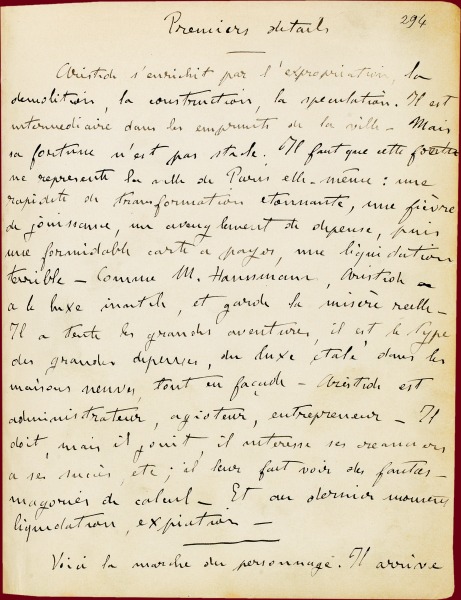 Premiers détails
294
Aristide s'enrichit par l'expropriation, la
démolition, la construction, la spéculation. Il est
intermédiaire dans les emprunts de la ville – Mais
sa fortune n'est pas stable. Il faut que cette fortune
me représente la ville de Paris elle-même : une
rapidité de transformation étonnante, une fièvre
de jouissance, un aveuglement de dépense, puis
une formidable carte à payer, une liquidation
terrible – Comme M. Haussmann, Aristide
a le luxe inutile, et garde la misère réelle –
Il a tenté les grandes aventures, il est le type
des grandes dépenses, du luxe étalé dans les
maisons neuves, tout en façade – Aristide est
administrateur, agioteur, entrepreneur – Il
doit, mais il jouit, il intéresse ses créanciers
à ses succès, etc ; il leur fait voir des fantas-
magories de calcul – Et au dernier moment
liquidation, expiation –
Voici la marche du personnage. Il arrive